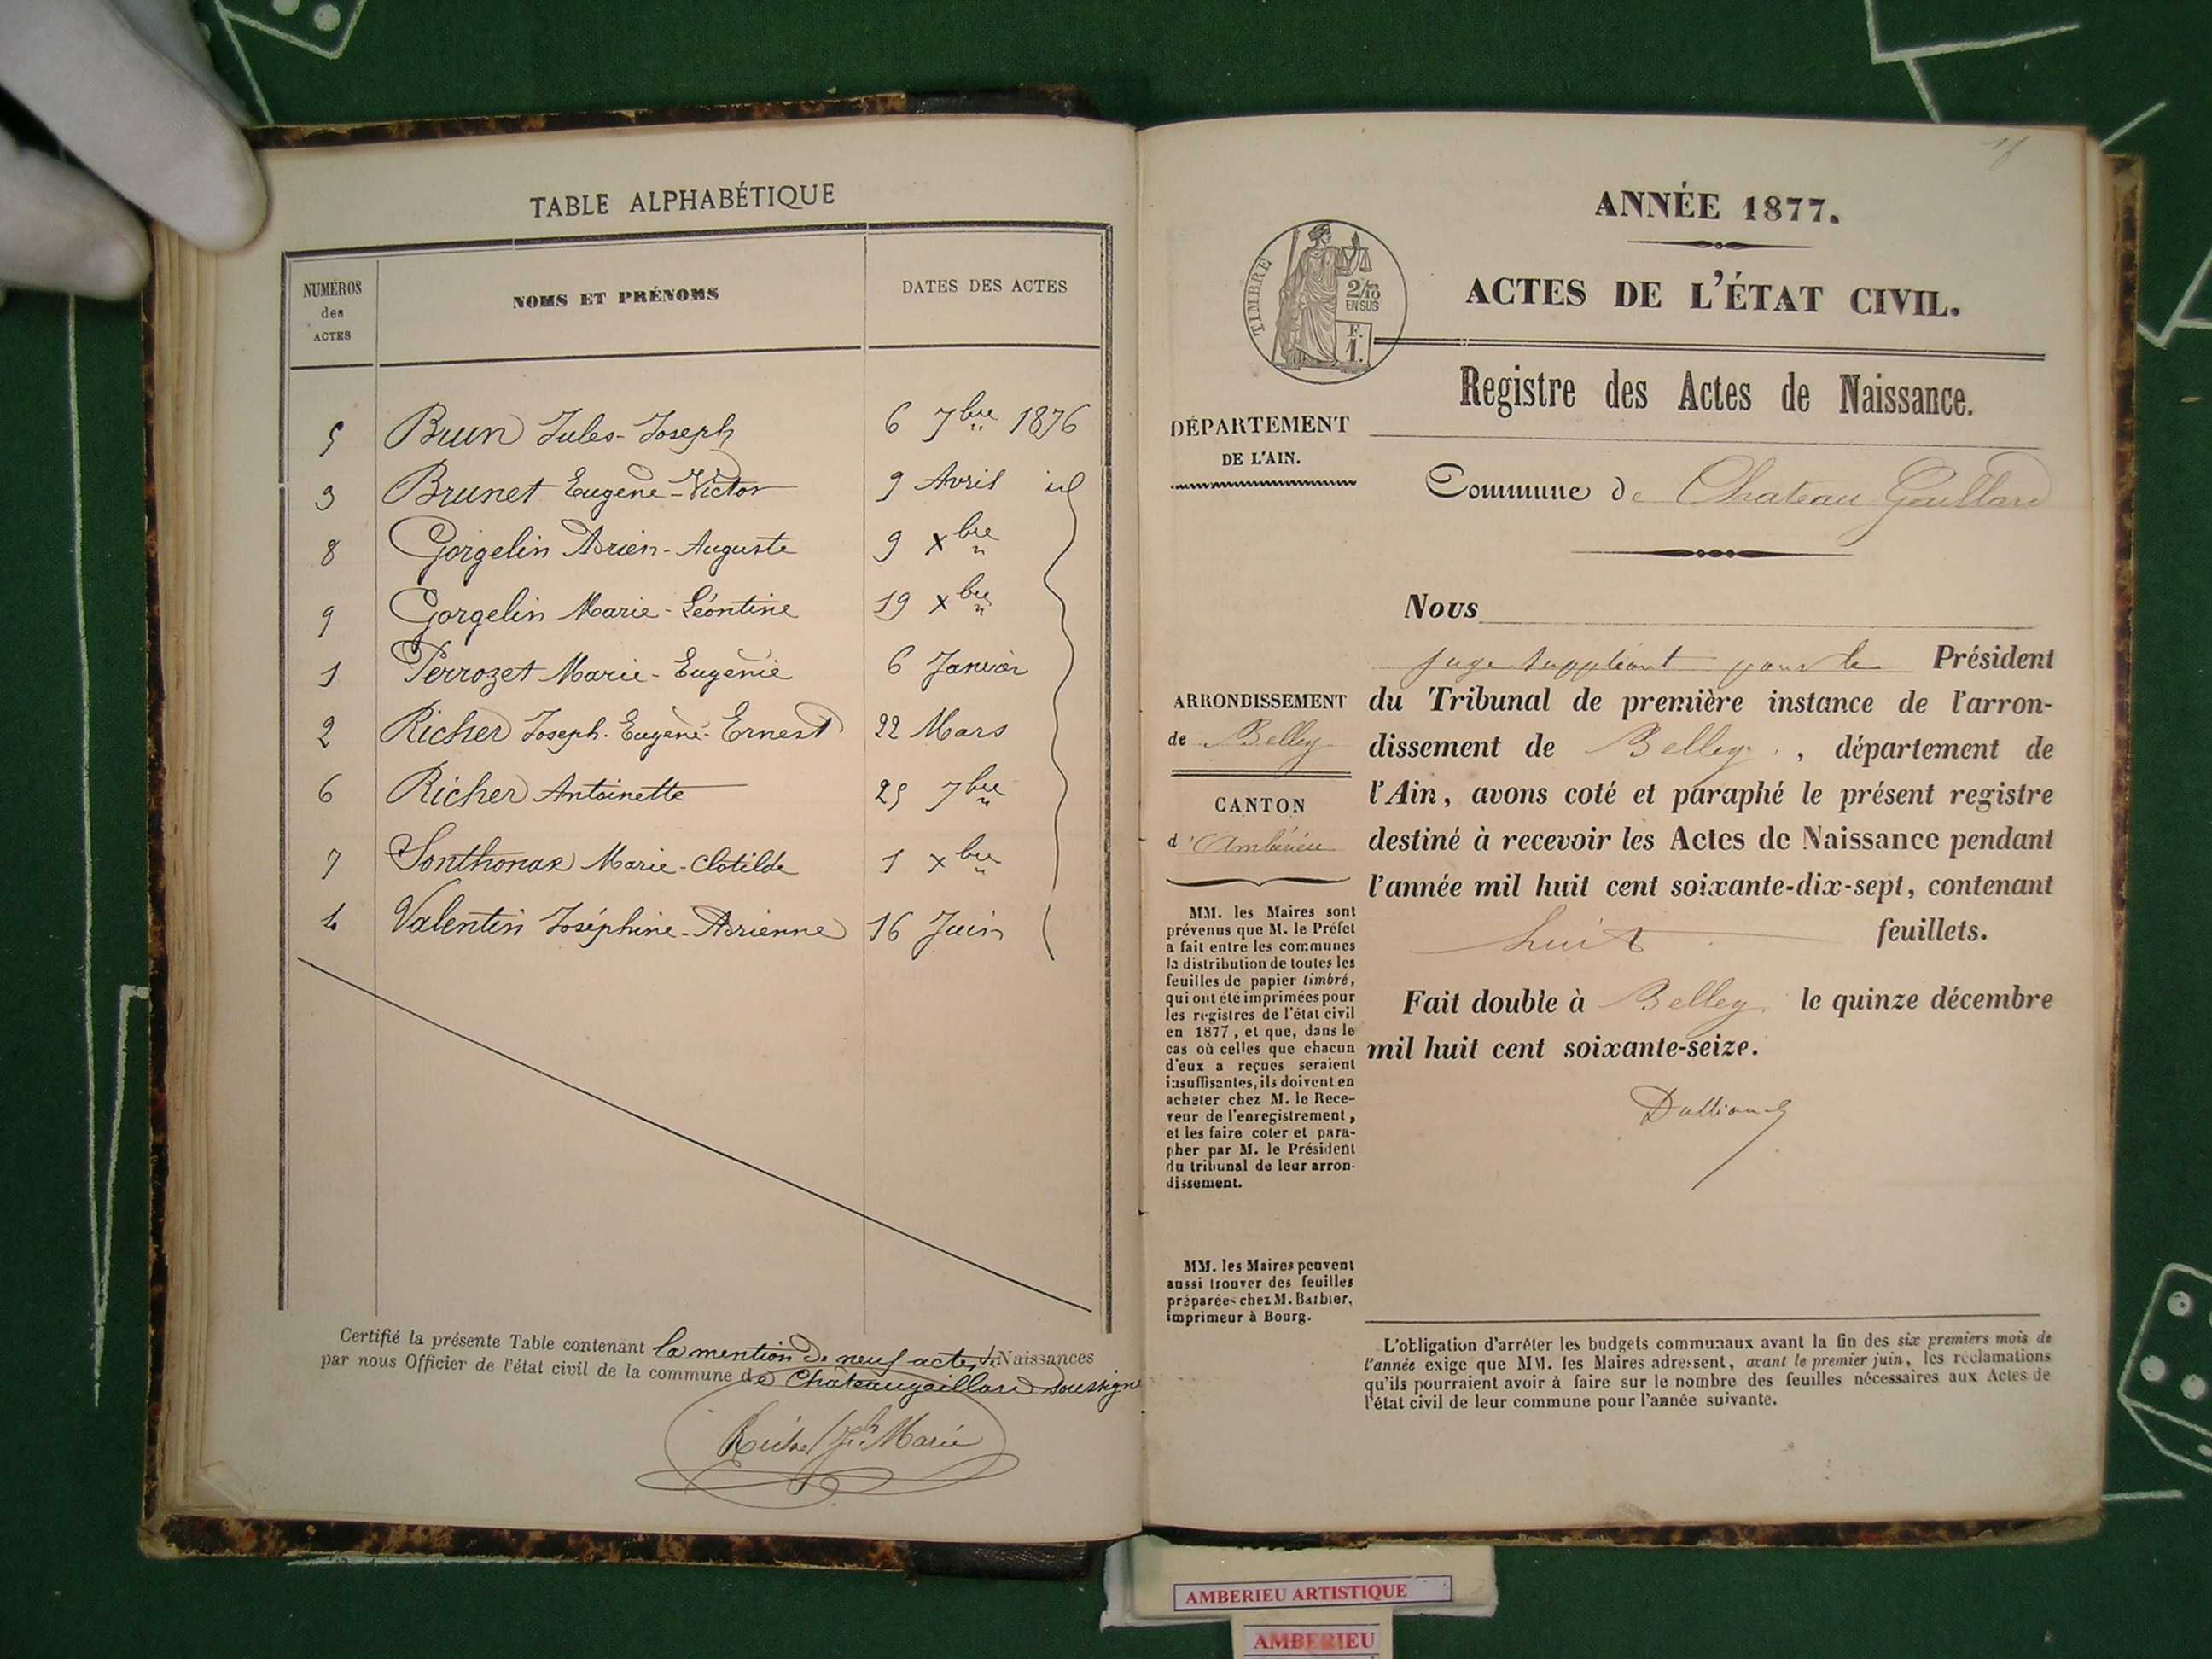 TABLE ALPHABÉTIQUE
NUMÉROS des ACTES
NOMS ET PRÉNOMS
DATES DES ACTES
5 Brun Jules-Joseph 6 7bre 1876
3 Brunet Eugène-Victor 9 Avril id
8 Gorgelin Adrien-Auguste 9 xbre "
9 Gorgelin Marie-Léontine 19 xbre "
1 Perrozet Marie-Eugénie 6 Janvier
2 Richer Joseph-Eugène-Ernest 22 Mars
6 Richer Antoinette 25 7bre "
7 Sonthonax Marie-Clotilde 1 xbre "
4 Valentin Joséphine-Adrienne 16 Juin
Certifié la présente Table contenant la mention de neuf actes de Naissances
par nous Officier de l'état civil de la commune de Chateaugaillard soussigné
Richer Jh Marie
ANNÉE 1877.
ACTES DE L'ÉTAT CIVIL.
TIMBRE
2/10
EN SUS
F.
1.
Registre des Actes de Naissance.
DÉPARTEMENT
DE L'AIN.
Commune de Chateau Gaillard
Nous
juge suppléant pour le Président
du Tribunal de première instance de l'arron-
dissement de Belley, département de
l'Ain, avons coté et paraphé le présent registre
destiné à recevoir les Actes de Naissance pendant
l'année mil huit cent soixante-dix-sept, contenant
huit feuillets.
Fait double à Belley le quinze décembre
mil huit cent soixante-seize.
ARRONDISSEMENT
de Belley
CANTON
d'Ambérieu
MM. les Maires sont
prévenus que M. le Préfet
a fait entre les communes
la distribution de toutes les
feuilles de papier timbré,
qui ont été imprimées pour
les registres de l'état civil
en 1877, et que, dans le
cas où celles que chacun
d'eux a reçues seraient
insuffisantes, ils doivent en
acheter chez M. le Rece-
veur de l'enregistrement,
et les faire coter et para-
pher par M. le Président
du tribunal de leur arron-
dissement.
MM. les Maires peuvent
aussi trouver des feuilles
préparées chez M. Barbier,
imprimeur à Bourg.
L'obligation d'arrêter les budgets communaux avant la fin des six premiers mois de
l'année exige que MM. les Maires adressent, avant le premier juin, les réclamations
qu'ils pourraient avoir à faire sur le nombre des feuilles nécessaires aux Actes de
l'état civil de leur commune pour l'année suivante.
AMBERIEU ARTISTIQUE
AMBERIEU